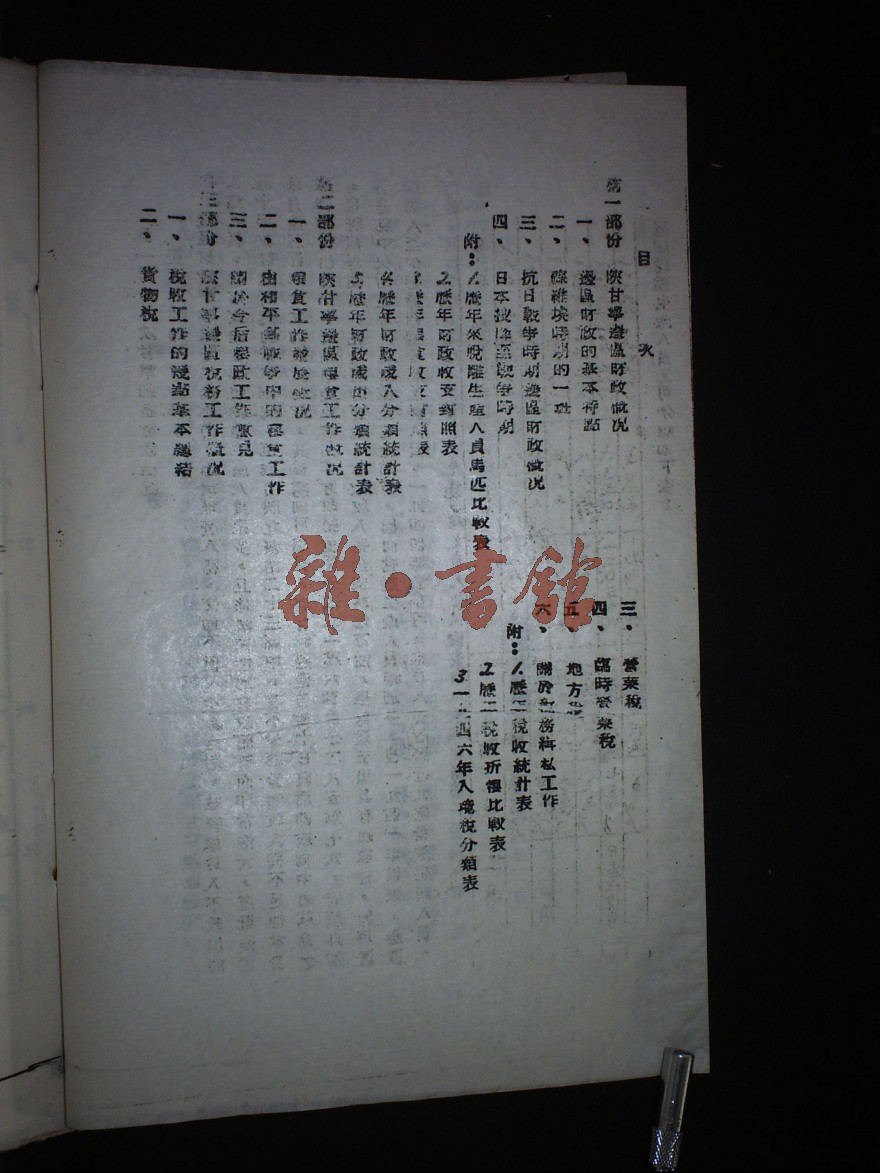 目次
第一部份 陝甘寧邊區財政概况
一、邊區財政的基本特點
二、 時期的一
三、抗日戰爭時期邊區財政概况
四、日本投降至 爭時期
附：1.歷年來脫離生產人員馬匹比較表
2.歷年財政收支對照表
3.歷年 食收支 表
4.歷年財政 入分類統計表
5.歷年財政 出分類統計表
第二部份 陝甘寧邊區糧食工作概况
一、糧食工作 概况
二、由和平到戰爭中的糧食工作
三、關於今后糧政工作意見
第三部份 陝甘寧邊區稅務工作概况
一、稅收工作的幾點基本總結
二、貨物稅
三、營業稅
四、臨時營業稅
五、地方
六、關於 務緝私工作
附：1.歷年稅收統計表
2.歷年稅收折糧比較表
3.一九四六年入境稅分類表
雜·書館